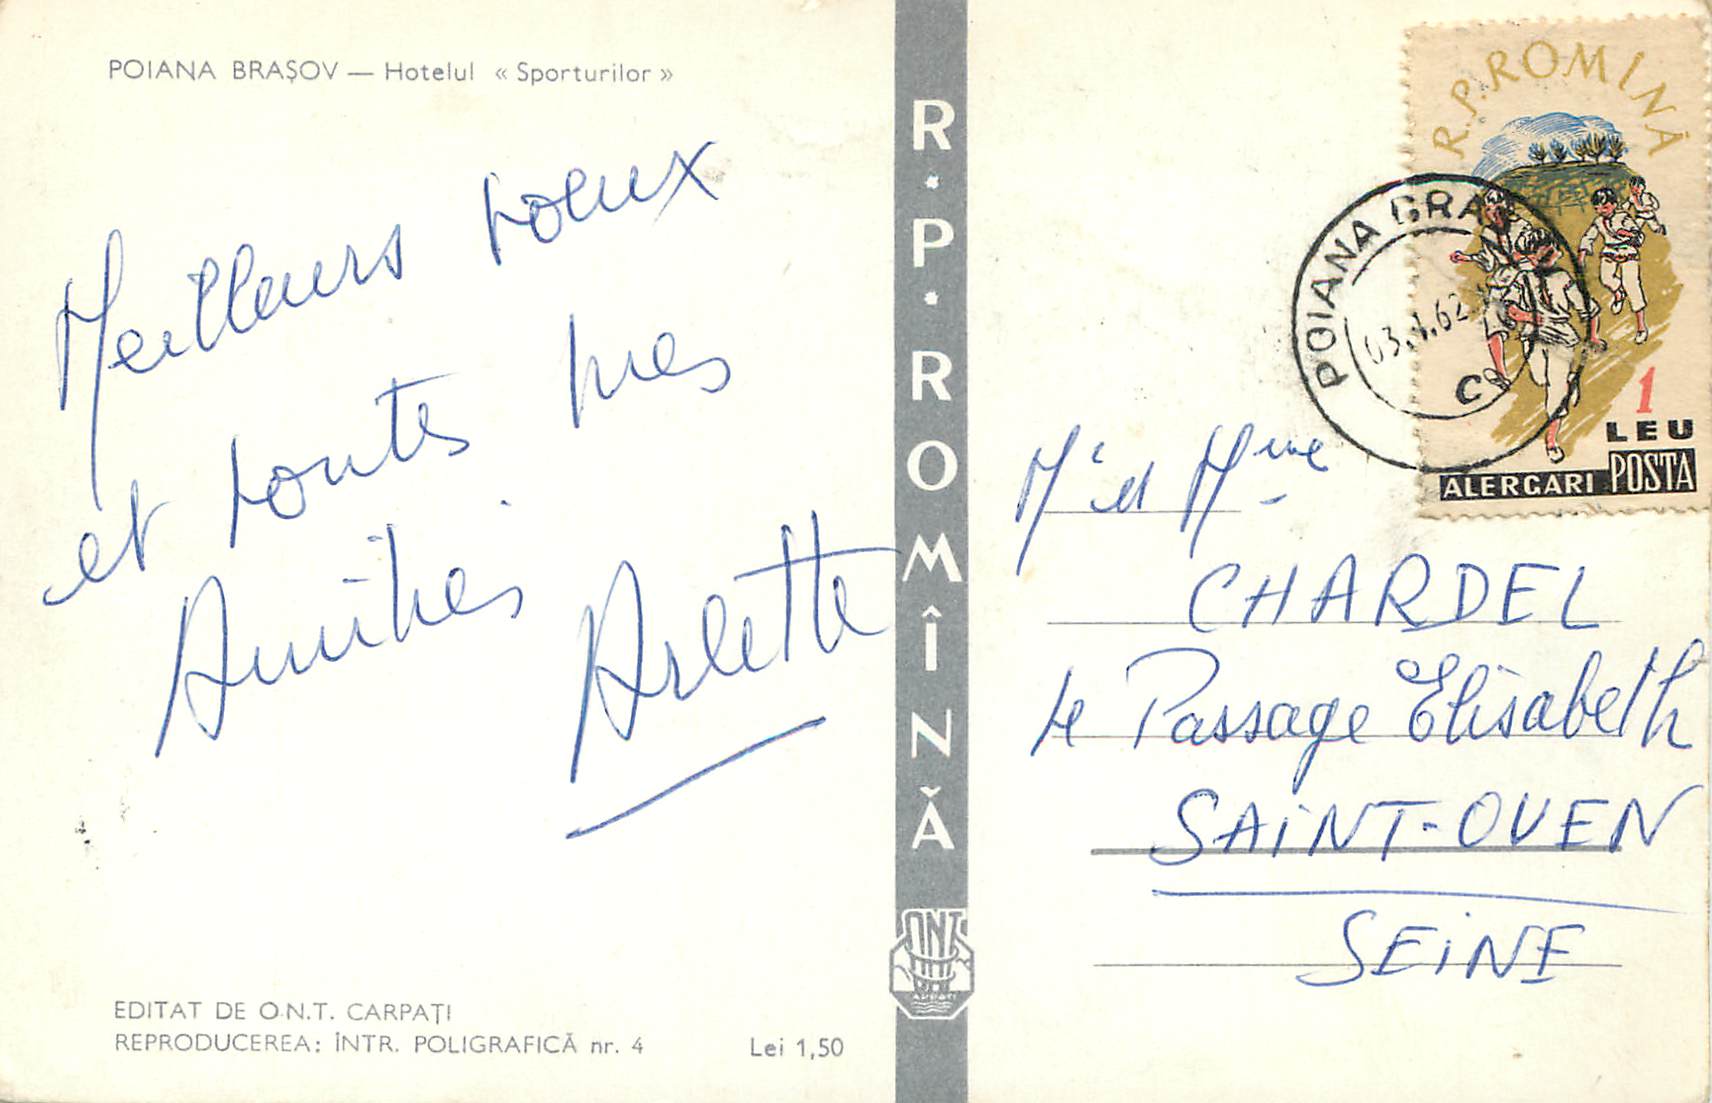 POIANA BRAŞOV — Hotelul « Sporturilor »
Meilleurs voeux
et toutes mes
Amitiés
Arlette
EDITAT DE O.N.T. CARPAŢI
REPRODUCEREA: ÎNTR. POLIGRAFICĂ nr. 4
Lei 1,50
R·P·ROMÎNĂ
ONT
CARPAŢI
R.P.ROMINĂ
POIANA BRA
03. .62
C
1
LEU
ALERGARI POSTA
Mr et Mme
CHARDEL
Passage Elisabeth
SAINT-OUEN
SEINE